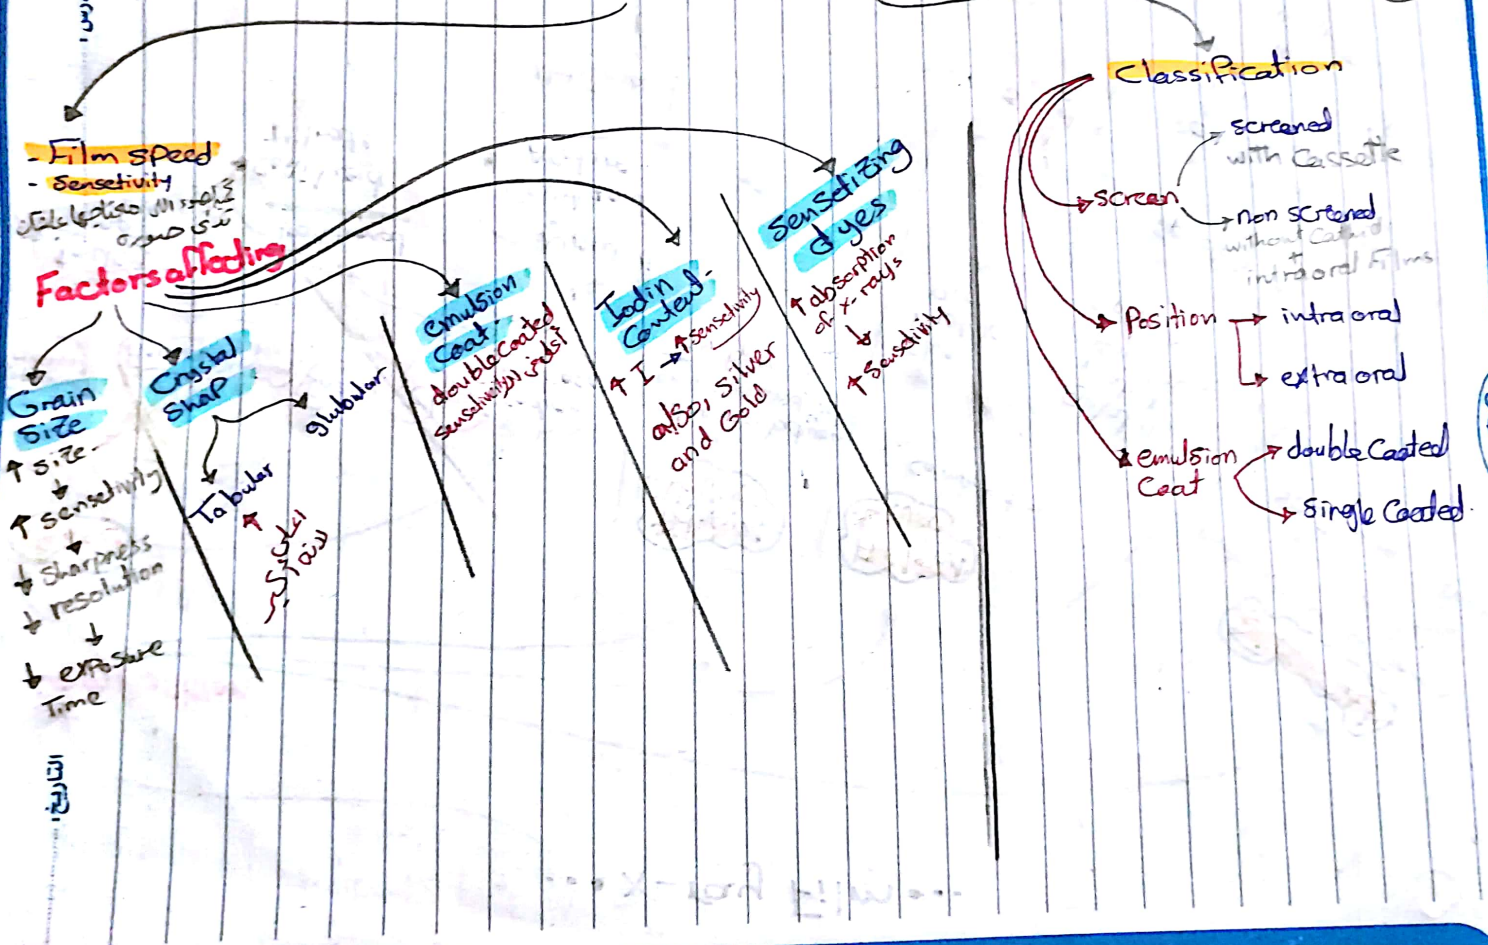 - Film speed
- Sensetivity
تدى صورة
Factors affecting
Grain
Size
↑ size
↓
↑ sensetivity
↓
↓ sharpness
↓ resolution
↓
↓ exposure
Time
Crystal
ShaP
glubular
Tabular
emulsion
Coat
double Coated
sensetivity
Iodin
Content
↑ I → ↑ sensetivity
also, silver
and Gold
Sensetizing
dyes
↑ absorption
of x-rays
↓
↑ sensetivity
Classification
screen
screened
with Cassette
non screened
without
+
intraoral Films
Position → intra oral
extra oral
emulsion
Coat
double Coated
Single Coated
التاريخ: